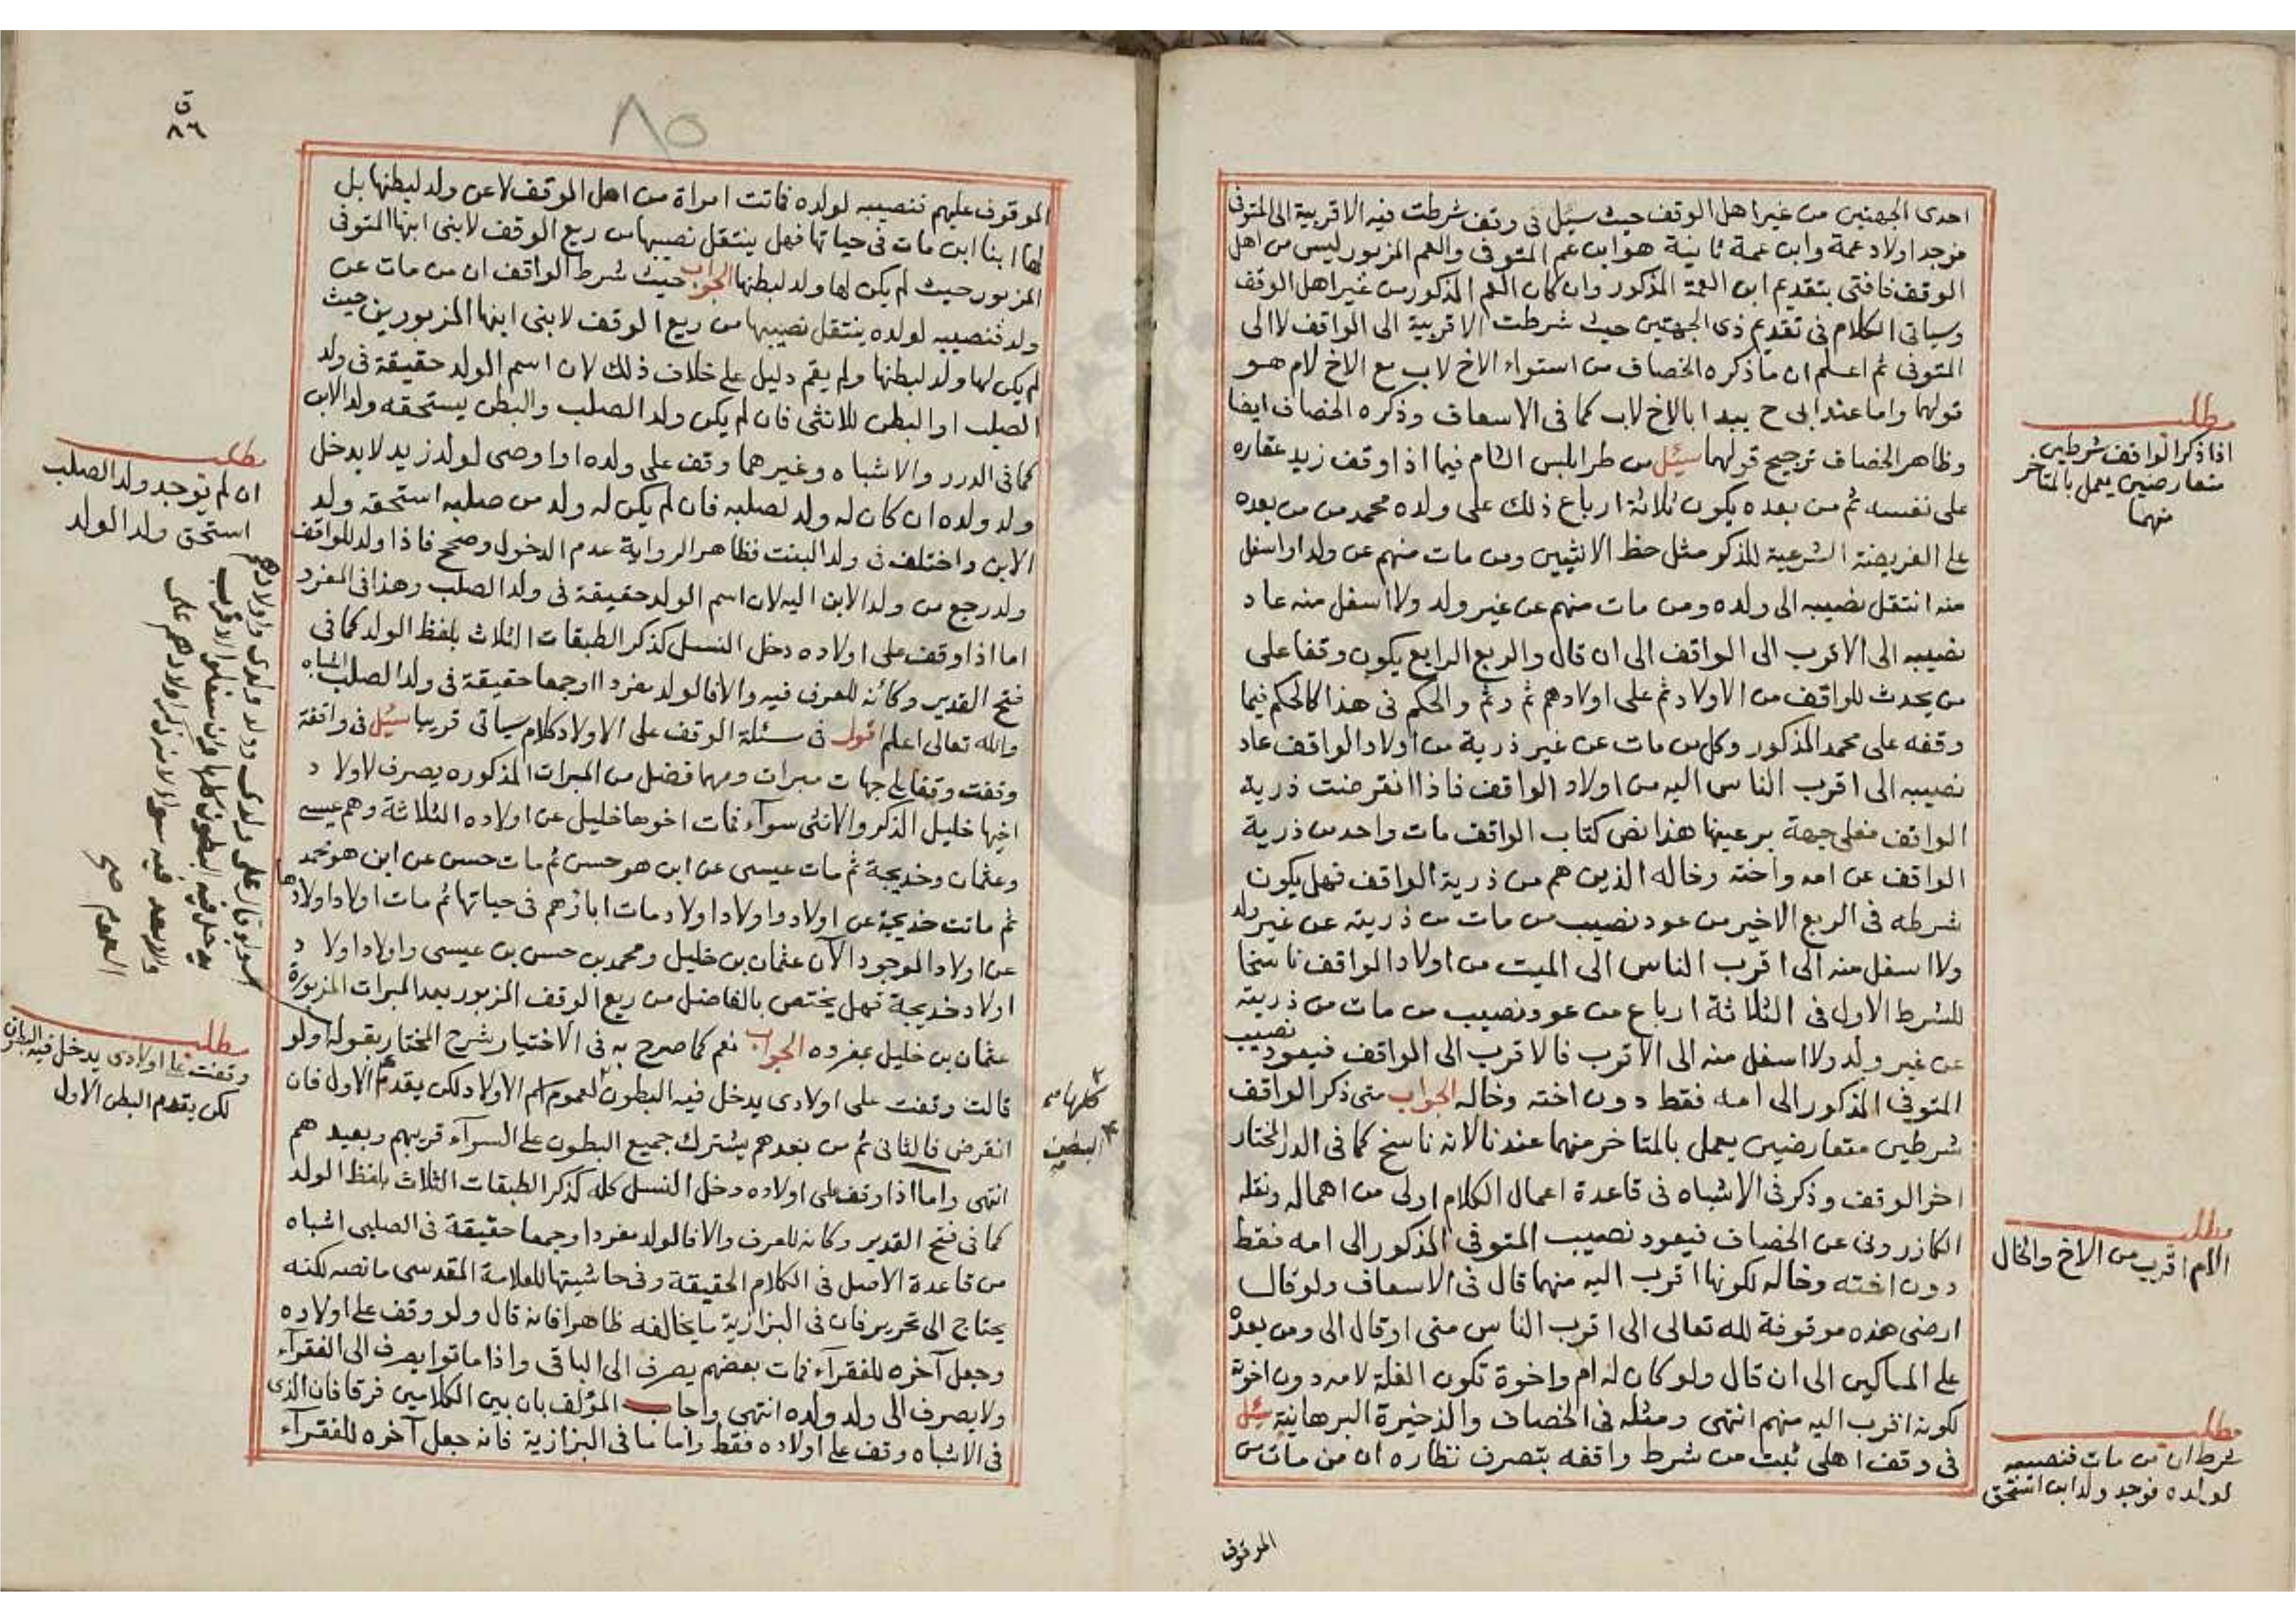 احدى الجهتين من غير اهل الوقف حيث سئل في وقف شرطت فيه الاقربية الى المتوفى
فوجد اولاد عمة وابن عمة ثانية هو ابن عم المتوفى والعم المزبور ليس من اهل
الوقف فافتى بتقديم ابن العمة المذكور وان كان العم المذكور من غير اهل الوقف
وسياتي الكلام في تقديم ذي الجهتين حيث شرطت الاقربية الى الواقف لا الى
المتوفى ثم اعلم ان ما ذكره الخصاف من استواء الاخ لاب مع الاخ لام هو
قولهما واما عند ابي ح يبدا بالاخ لاب كما في الاسعاف وذكره الخصاف ايضا
وظاهر الخصاف ترجيح قولهما سئل من طرابلس الشام فيما اذا وقف زيد عقاره
على نفسه ثم من بعده يكون ثلاثة ارباع ذلك على ولده محمد من من بعده
على الفريضة الشرعية للذكر مثل حظ الانثيين ومن مات منهم عن ولد او اسفل
منه انتقل نصيبه الى ولده ومن مات منهم عن غير ولد ولا اسفل منه عاد
نصيبه الى الاقرب الى الواقف الى ان قال والربع الرابع يكون وقفا على
من يحدث للواقف من الاولاد ثم على اولادهم ثم وثم والحكم في هذا كالحكم فيما
وقفه على محمد المذكور وكل من مات عن غير ذرية من اولاد الواقف عاد
نصيبه الى اقرب الناس اليه من اولاد الواقف فاذا انقرضت ذرية
الواقف فعلى جهة بر عينها هذا نص كتاب الواقف مات واحد من ذرية
الواقف عن امه واخته وخاله الذين هم من ذرية الواقف فهل يكون
شرطه في الربع الاخير من عود نصيب من مات من ذريته عن غير ولد
ولا اسفل منه الى اقرب الناس الى الميت من اولاد الواقف ناسخا
للشرط الاول في الثلاثة ارباع من عود نصيب من مات من ذريته
عن غير ولد ولا اسفل منه الى الاقرب فالاقرب الى الواقف فيعود نصيب
المتوفى المذكور الى امه فقط دون اخته وخاله الجواب متى ذكر الواقف
شرطين متعارضين يعمل بالمتاخر منهما عندنا لانه ناسخ كما في الدر المختار
اخر الوقف وذكر في الاشباه في قاعدة اعمال الكلام اولى من اهماله ونقله
الكازروني عن الخصاف فيعود نصيب المتوفى المذكور الى امه فقط
دون اخته وخاله لكونها اقرب اليه منهما قال في الاسعاف ولو قال
ارضي هذه موقوفة لله تعالى الى اقرب الناس مني او قال الي ومن بعده
على المساكين الى ان قال ولو كان له ام واخوة تكون الغلة لامه دون اخوته
لكونه اقرب اليه منهم انتهى ومثله في الخصاف والذخيرة البرهانية سئل
في وقف اهلي ثبت من شرط واقفه بتصرف نظاره ان من مات من
الموقوف
مطلب
اذا ذكر الواقف شرطين
متعارضين يعمل بالمتاخر
منهما
مطلب
الام اقرب من الاخ والخال
مطلب
شرط ان من مات فنصيبه
لولده فوجد ولد ابن استحق
ق
٨٦
٨٥
الموقوف عليهم فنصيبه لولده فماتت امراة من اهل الوقف لا عن ولد لبطنها بل
لها ابنا ابن مات في حياتها فهل ينتقل نصيبها من ريع الوقف لابني ابنها المتوفى
المزبور حيث لم يكن لها ولد لبطنها الجواب حيث شرط الواقف ان من مات عن
ولد فنصيبه لولده ينتقل نصيبها من ريع الوقف لابني ابنها المزبورين حيث
لم يكن لها ولد لبطنها ولم يقم دليل على خلاف ذلك لان اسم الولد حقيقة في ولد
الصلب او البطن للانثى فان لم يكن ولد الصلب والبطن يستحقه ولد الابن
كما في الدرر والاشباه وغيرهما وقف على ولده او اوصى لولد زيد لا يدخل
ولد ولده ان كان له ولد لصلبه فان لم يكن له ولد من صلبه استحقه ولد
الابن واختلف في ولد البنت فظاهر الرواية عدم الدخول وصحح فاذا ولد للواقف
ولد رجع من ولد الابن اليه لان اسم الولد حقيقة في ولد الصلب وهذا في المفرد
اما اذا وقف على اولاده دخل النسل كذكر الطبقات الثلاث بلفظ الولد كما في
فتح القدير وكأنه للعرف فيه والا فالولد مفردا او جمعا حقيقة في ولد الصلب اشباه
والله تعالى اعلم اقول في مسئلة الوقف على الاولاد كلام سياتي قريبا سئل في واقفة
وقفت وقفا على جهات مبرات ومهما فضل من المبرات المذكوره يصرف لاولاد
اخيها خليل الذكر والانثى سوآء فمات اخوها خليل عن اولاده الثلاثة وهم عيسى
وعثمان وخديجة ثم مات عيسى عن ابن هو حسن ثم مات حسن عن ابن هو محمد
ثم ماتت خديجة عن اولاد واولاد اولاد مات اباؤهم في حياتها ثم مات اولاد اولادها
عن اولاد الموجود الآن عثمان بن خليل ومحمد بن حسن بن عيسى واولاد اولاد
اولاد خديجة فهل يختص بالفاضل من ريع الوقف المزبور بعد المبرات المزبورة
عثمان بن خليل بمفرده الجواب نعم كما صرح به في الاختيار شرح المختار بقوله ولو
قالت وقفت على اولادي يدخل فيه البطون لعموم اسم الاولاد لكن يقدم الاول فان
انقرض فالثاني ثم من بعدهم يشترك جميع البطون على السوآء قريبهم وبعيدهم
انتهى واما اذا وقف على اولاده دخل النسل كله كذكر الطبقات الثلاث بلفظ الولد
كما في فتح القدير وكانه للعرف والا فالولد مفردا وجمعا حقيقة في الصلبي اشباه
من قاعدة الاصل في الكلام الحقيقة وفي حاشيتها للعلامة المقدسي ما نصه لكنه
يحتاج الى تحرير فان في البزازية ما يخالفه ظاهرا فانه قال ولو وقف على اولاده
وجعل آخره للفقرآء فمات بعضهم يصرف الى الباقي واذا ماتوا يصرف الى الفقرآء
ولا يصرف الى ولد ولده انتهى واجاب المؤلف بان بين الكلامين فرقا فان الذي
في الاشباه وقف على اولاده فقط واما ما في البزازية فانه جعل آخره للفقرآء
كلها
البطن
مطلب
ان لم يوجد ولد الصلب
استحق ولد الولد
ولو قال على ولدي وولد ولدي واولادهم
يدخل فيه البطون كلها وان سفلوا الاقرب
والابعد فيه سوا لانه ذكر اولادهم على
العموم صح
مطلب
وقفت على اولادي يدخل فيه البطون
لكن يقدم البطن الاول